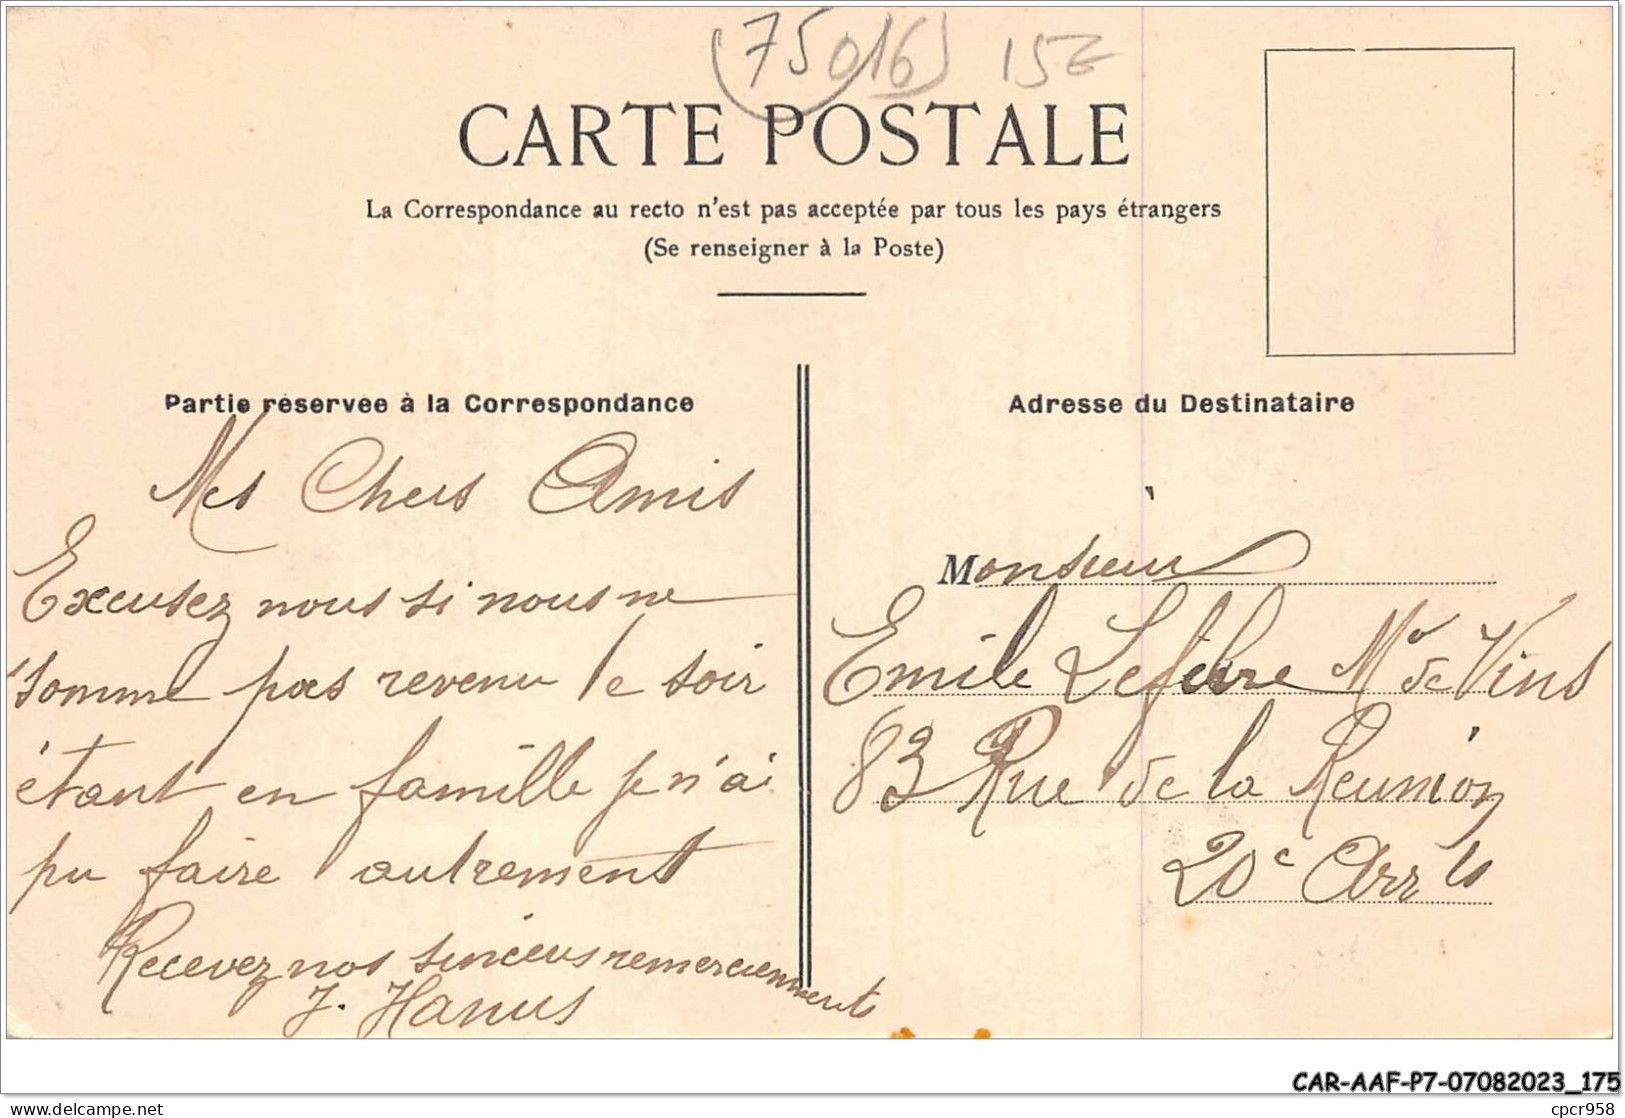 (75016) 15E
CARTE POSTALE
La Correspondance au recto n'est pas acceptée par tous les pays étrangers
(Se renseigner à la Poste)
Partie réservée à la Correspondance
Mes Chers Amis
Excusez nous si nous ne
somme pas revenu le soir
étant en famille je n'ai
pu faire autrement
Recevez nos sinceres remerciements
J. Hanus
Adresse du Destinataire
Monsieur
Emile Lefebvre Md de Vins
83 Rue de la Reunion
20e Arrts
CAR-AAF-P7-07082023_175
delcampe.net
cpcr958